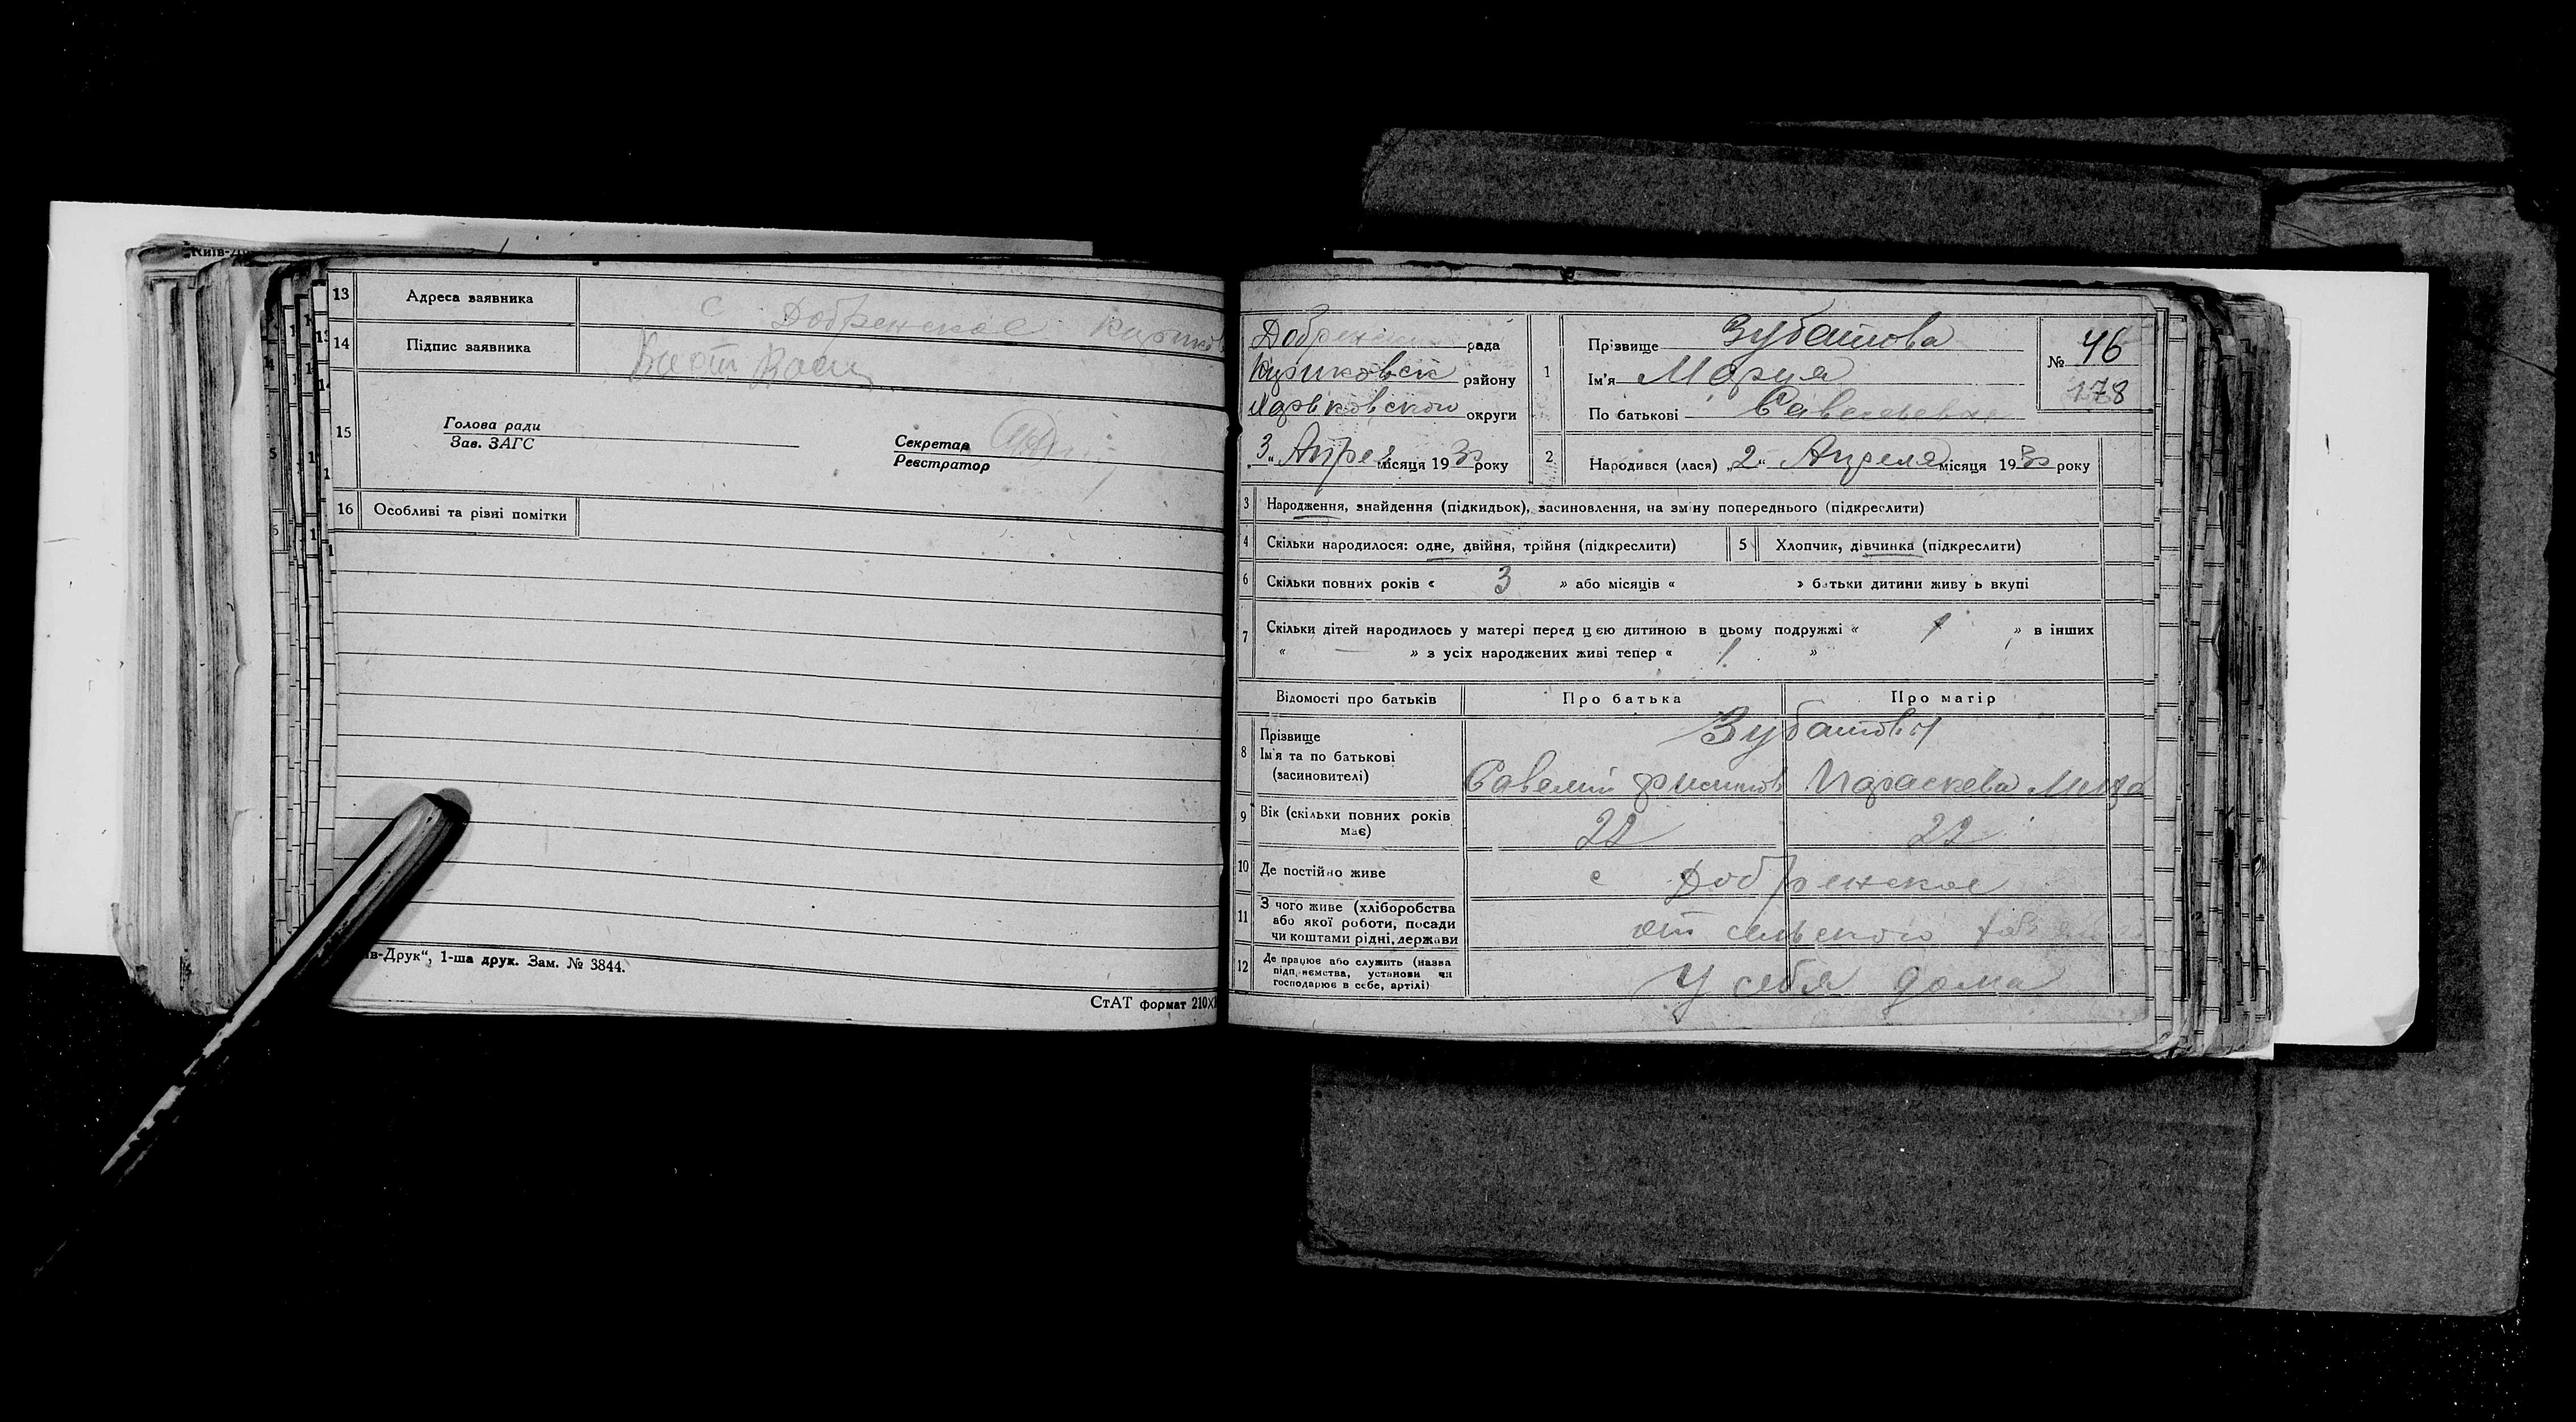 13 Адреса заявника с Добренское
14 Підпис заявника
15 Голова ради
Зав. ЗАГС
Секретар
Реєстратор
16 Особливі та різні помітки
в-Друк", 1-ша друк. Зам. № 3844.
СтАТ формат 210X
рада
району
округи
"3" місяця 1930 року
1 Прізвище Зубатова
Ім'я Мария
По батькові Савельевна
№ 46
178
2 Народився (лася) "2" Апреля місяця 1930 року
3 Народження, знайдення (підкидьок), засиновлення, на зміну попереднього (підкреслити)
4 Скільки народилося: одне, двійня, трійня (підкреслити)
5 Хлопчик, дівчинка (підкреслити)
6 Скільки повних років « 3 » або місяців « » батьки дитини живуть вкупі
7 Скільки дітей народилось у матері перед цією дитиною в цьому подружжі « 1 » в інших
« — » з усіх народжених живі тепер « 1 »
Відомості про батьків Про батька Про матір
8 Прізвище
Ім'я та по батькові
(засновителі)
Зубатовы
Савелий Параскева
9 Вік (скільки повних років
має)
22 22
10 Де постійно живе с Добренское
11 З чого живе (хліборобства
або якої роботи, посади
чи коштами рідні, держави
от сельского
12 Де працює або служить (назва
підприємства, установи чи
господарює в себе, артілі)
У себя дома